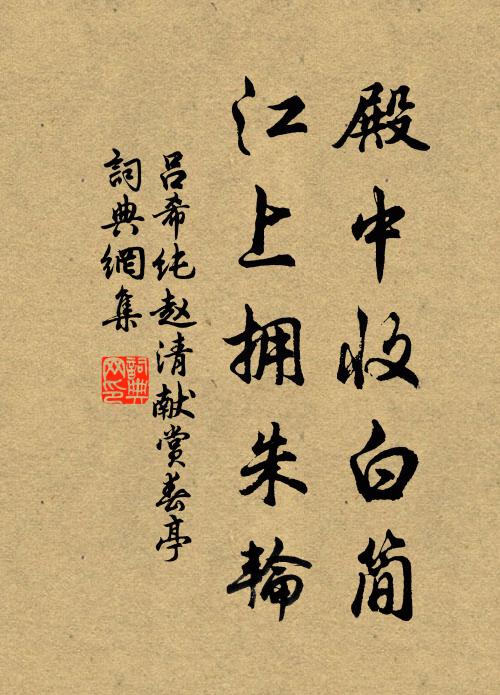 殿中收白简
江上拥朱輪
吕希纯赵清献赏春亭
詞典網集
詞典
网印